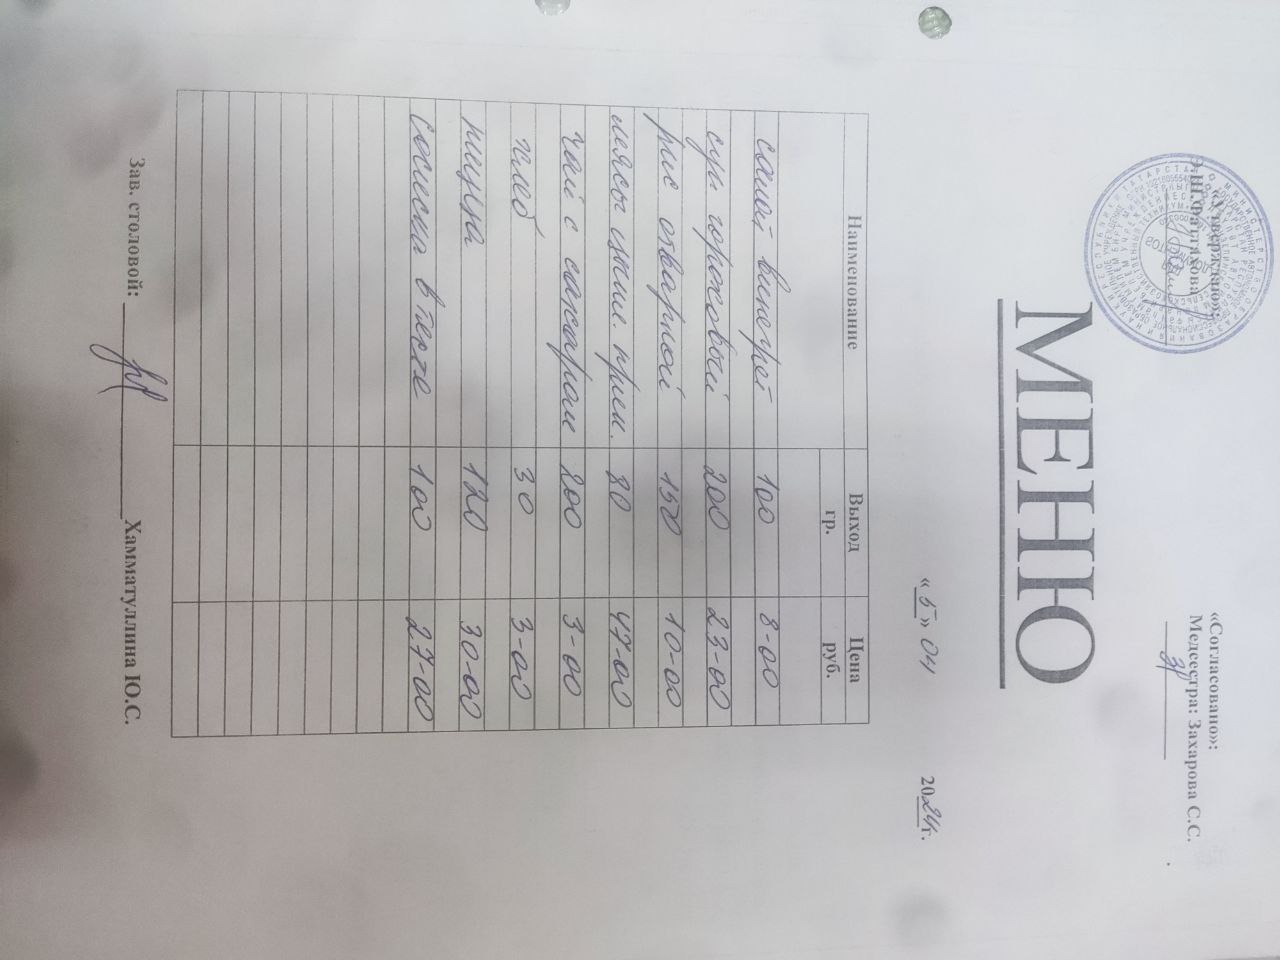 «Утверждаю»:
Э.Ш.Фаттахова
«Согласовано»:
Медсестра: Захарова С.С.
МЕНЮ
«5» 04 2024г.
Наименование Выход гр. Цена руб.
салат винегрет 100 8-00
суп гороховый 200 23-00
рис отварной 150 10-00
мясо цыпл. прип. 80 47-00
чай с сахаром 200 3-00
хлеб 30 3-00
пицца 120 30-00
сосиска в тесте 100 27-00
Зав. столовой: Хамматуллина Ю.С.